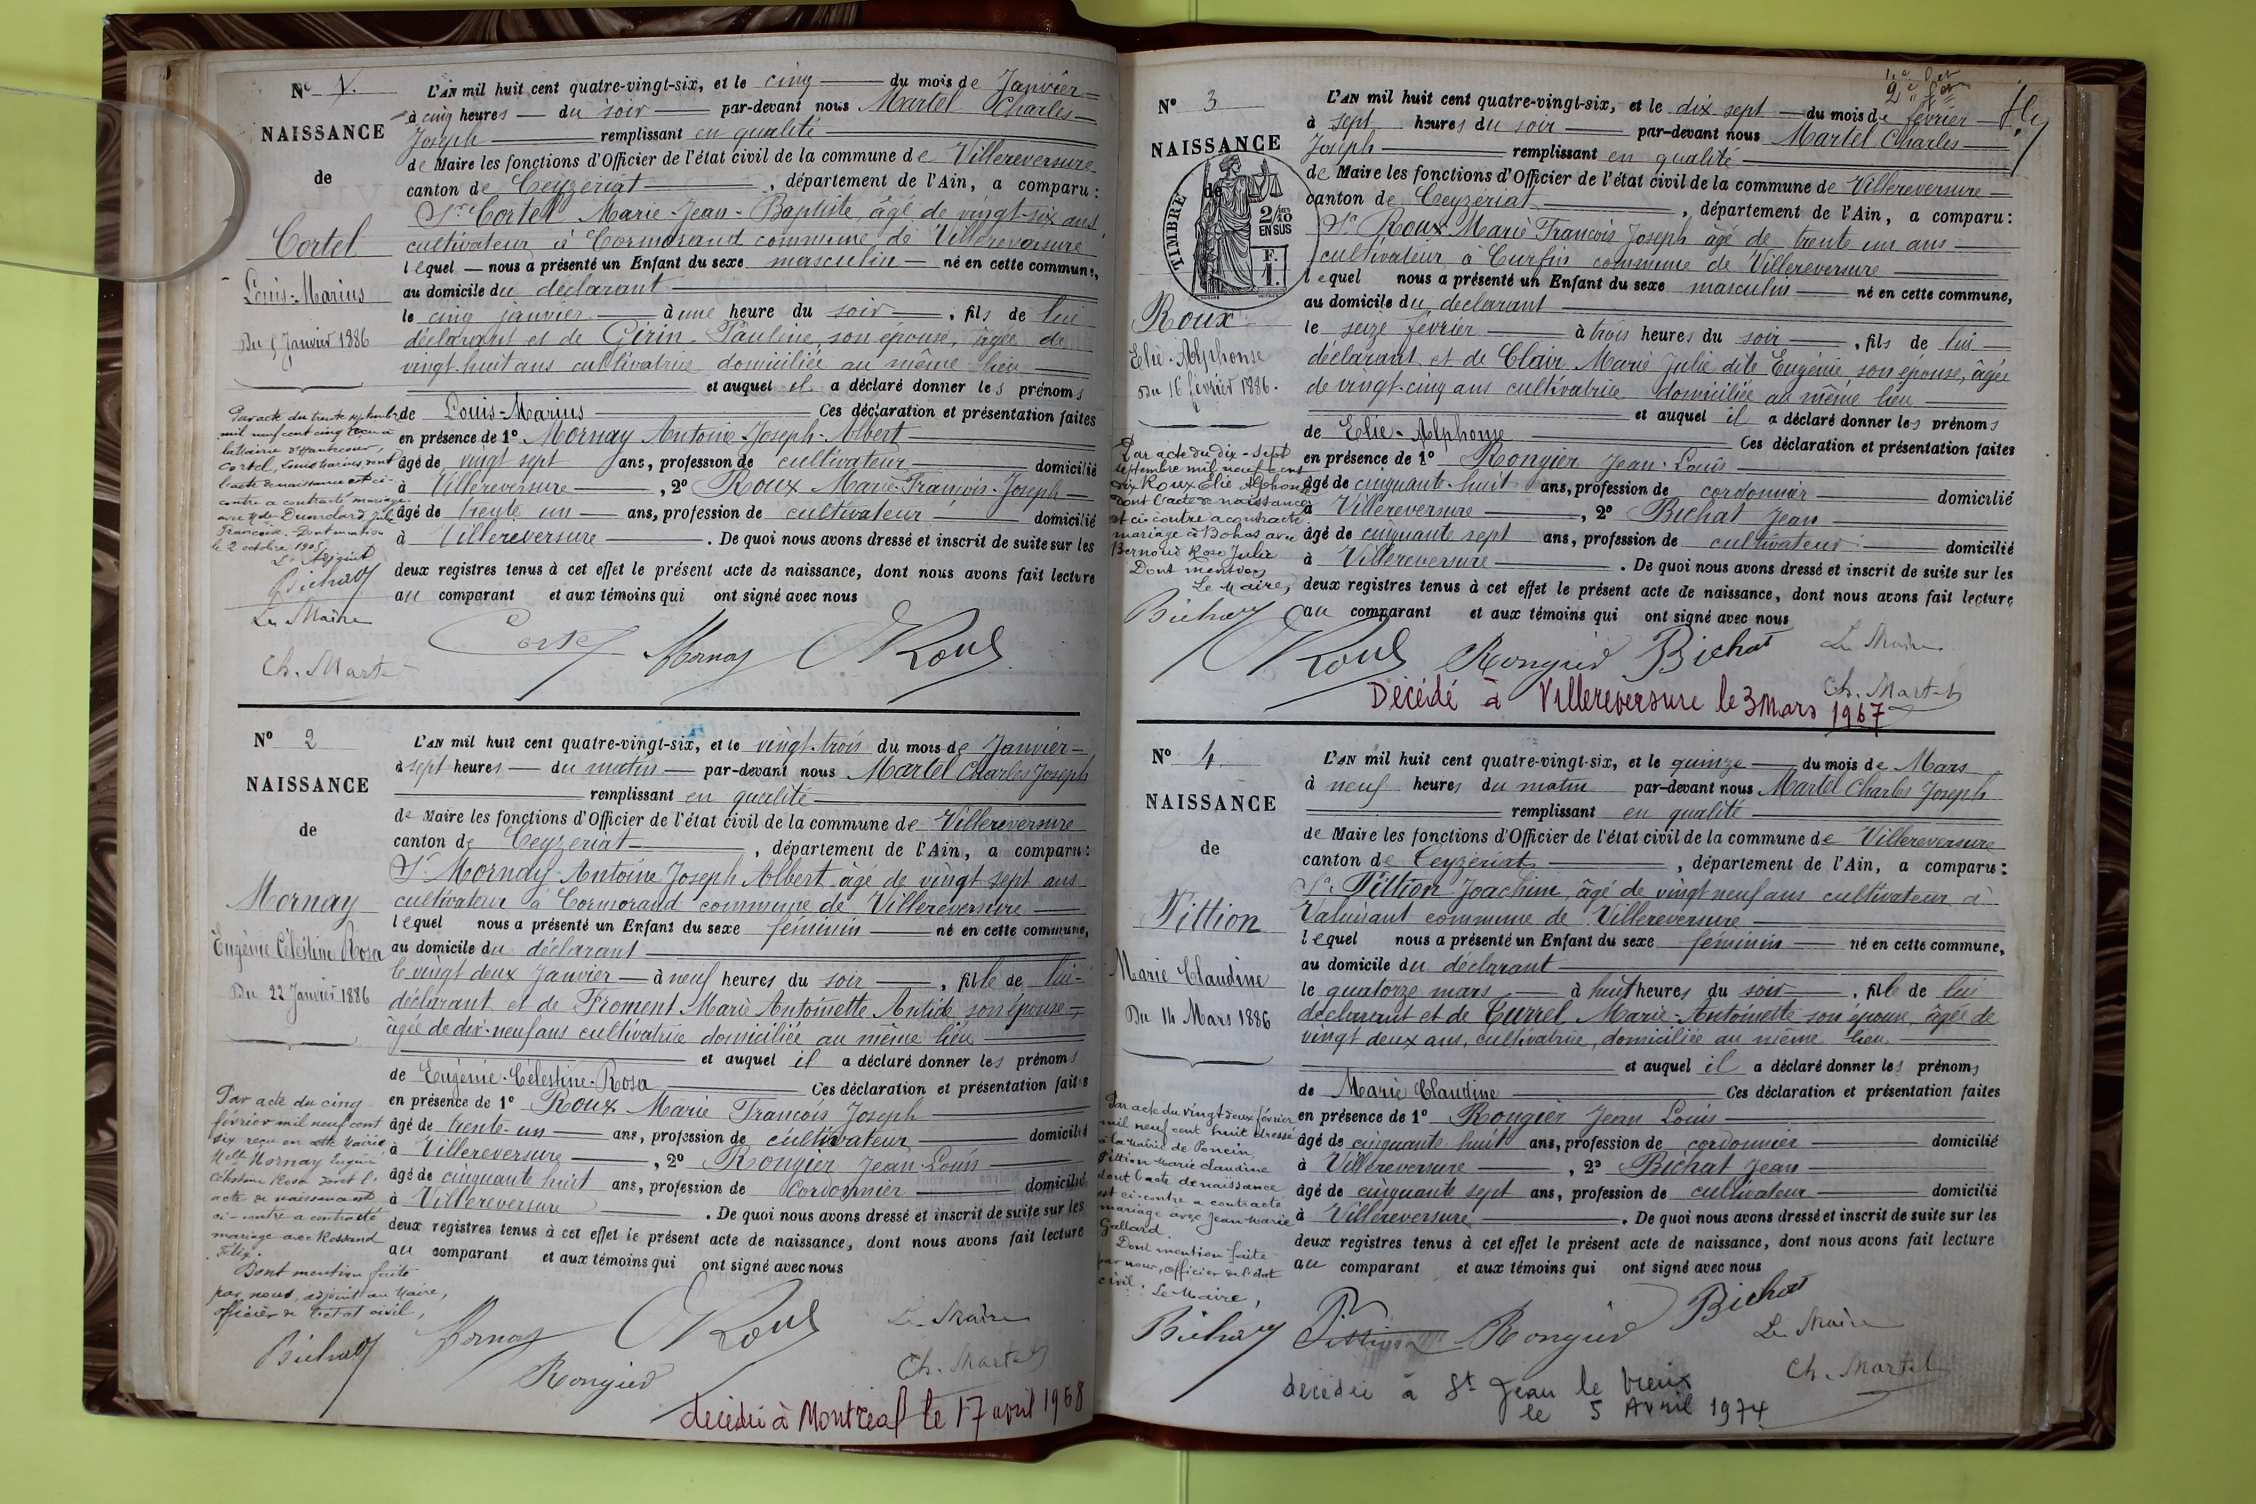 N° 1.
NAISSANCE
de
Cortel
Louis-Marius
Du 5 Janvier 1886
Par acte du trente septembre
mil neuf cent cinq reçu à
la Mairie d'Hautecour,
Cortel, Louis Marius dont
l'acte de naissance est ci-
contre a contracté mariage
avec Dumolard Julie
Françoise. Dont mention
le 2 octobre 1905
L'Adjoint
Bichat
Le Maire
Ch. Martel
L'AN mil huit cent quatre-vingt-six, et le cinq du mois de Janvier
à cinq heures du soir par-devant nous Martel Charles
Joseph remplissant en qualité
de Maire les fonctions d'Officier de l'état civil de la commune de Villereversure
canton de Ceyzériat, département de l'Ain, a comparu:
Sr Cortel Marie-Jean-Baptiste, âgé de vingt-six ans
cultivateur à Cormorand commune de Villereversure
lequel nous a présenté un Enfant du sexe masculin né en cette commune,
au domicile du déclarant
le cinq janvier à une heure du soir, fils de lui
déclarant et de Girin Pauline, son épouse, âgée de
vingt-huit ans cultivatrice domiciliée au même lieu
et auquel il a déclaré donner les prénoms
de Louis-Marius Ces déclaration et présentation faites
en présence de 1° Mornay Antoine-Joseph-Albert
âgé de vingt sept ans, profession de cultivateur domicilié
à Villereversure, 2° Roux Marie-François-Joseph
âgé de trente un ans, profession de cultivateur domicilié
à Villereversure. De quoi nous avons dressé et inscrit de suite sur les
deux registres tenus à cet effet le présent acte de naissance, dont nous avons fait lecture
au comparant et aux témoins qui ont signé avec nous
Cortel Mornay Roux
N° 2
NAISSANCE
de
Mornay
Eugénie Célestine Rosa
Du 22 Janvier 1886
Par acte du cinq
février mil neuf cent
six reçu en cette Mairie
Melle Mornay Eugénie
Célestine Rosa dont l'
acte de naissance est
ci-contre a contracté
mariage avec Rossand
Félix.
Dont mention faite
par nous, adjoint au Maire,
officier de l'état civil,
Bichat
L'AN mil huit cent quatre-vingt-six, et le vingt-trois du mois de Janvier
à sept heures du matin par-devant nous Martel Charles Joseph
remplissant en qualité
de Maire les fonctions d'Officier de l'état civil de la commune de Villereversure
canton de Ceyzériat, département de l'Ain, a comparu:
Sr Mornay Antoine Joseph Albert âgé de vingt sept ans
cultivateur à Cormorand commune de Villereversure
lequel nous a présenté un Enfant du sexe féminin né en cette commune,
au domicile du déclarant
le vingt deux Janvier à neuf heures du soir, fille de lui
déclarant et de Froment Marie Antoinette Antide son épouse
âgée de dix-neuf ans cultivatrice domiciliée au même lieu
et auquel il a déclaré donner les prénoms
de Eugénie-Célestine-Rosa Ces déclaration et présentation faites
en présence de 1° Roux Marie François Joseph
âgé de trente-un ans, profession de cultivateur domicilié
à Villereversure, 2° Rongier Jean-Louis
âgé de cinquante huit ans, profession de cordonnier domicilié
à Villereversure. De quoi nous avons dressé et inscrit de suite sur les
deux registres tenus à cet effet le présent acte de naissance, dont nous avons fait lecture
au comparant et aux témoins qui ont signé avec nous
Mornay Roux Le Maire
Rongier Ch. Martel
decédée à Montréal le 17 avril 1968
N° 3
NAISSANCE
de
TIMBRE
2/10
EN SUS
F.
1.
Roux
Elie-Alphonse
Du 16 février 1886.
Par acte du dix-sept
septembre mil neuf cent
dix Roux Elie Alphonse
dont l'acte de naissance
est ci-contre a contracté
mariage à Bohas avec
Bernoud Rose Julie
Dont mention
Le Maire,
Bichat
L'AN mil huit cent quatre-vingt-six, et le dix sept du mois de février
à sept heures du soir par-devant nous Martel Charles
Joseph remplissant en qualité
de Maire les fonctions d'Officier de l'état civil de la commune de Villereversure
canton de Ceyzériat, département de l'Ain, a comparu:
Sr Roux Marie François Joseph âgé de trente un ans
cultivateur à Curfin commune de Villereversure
lequel nous a présenté un Enfant du sexe masculin né en cette commune,
au domicile du déclarant
le seize février à trois heures du soir, fils de lui
déclarant et de Clair Marie Julie dite Eugénie son épouse, âgée
de vingt-cinq ans cultivatrice domiciliée au même lieu
et auquel il a déclaré donner les prénoms
de Elie-Alphonse Ces déclaration et présentation faites
en présence de 1° Rongier Jean-Louis
âgé de cinquante-huit ans, profession de cordonnier domicilié
à Villereversure, 2° Bichat Jean
âgé de cinquante sept ans, profession de cultivateur domicilié
à Villereversure. De quoi nous avons dressé et inscrit de suite sur les
deux registres tenus à cet effet le présent acte de naissance, dont nous avons fait lecture
au comparant et aux témoins qui ont signé avec nous
Roux Rongier Bichat Le Maire
Ch. Martel
Décédé à Villereversure le 3 Mars 1967
N° 4
NAISSANCE
de
Pittion
Marie Claudine
Du 14 Mars 1886
Par acte du vingt deux février
mil neuf cent huit dressé
à la mairie de Poncin,
Pittion Marie Claudine
dont l'acte de naissance
est ci-contre a contracté
mariage avec Jean Marie
Galland.
Dont mention faite
par nous, officier de l'état
civil. Le Maire,
Bichat
L'AN mil huit cent quatre-vingt-six, et le quinze du mois de Mars
à neuf heures du matin par-devant nous Martel Charles Joseph
remplissant en qualité
de Maire les fonctions d'Officier de l'état civil de la commune de Villereversure
canton de Ceyzériat, département de l'Ain, a comparu:
Sr Pittion Joachim, âgé de vingt neuf ans cultivateur à
commune de Villereversure
lequel nous a présenté un Enfant du sexe féminin né en cette commune,
au domicile du déclarant
le quatorze mars à huit heures du soir, fille de lui
déclarant et de Curnel Marie-Antoinette son épouse, âgée de
vingt deux ans, cultivatrice, domiciliée au même lieu
et auquel il a déclaré donner les prénoms
de Marie Claudine Ces déclaration et présentation faites
en présence de 1° Rongier Jean Louis
âgé de cinquante huit ans, profession de cordonnier domicilié
à Villereversure, 2° Bichat Jean
âgé de cinquante sept ans, profession de cultivateur domicilié
à Villereversure. De quoi nous avons dressé et inscrit de suite sur les
deux registres tenus à cet effet le présent acte de naissance, dont nous avons fait lecture
au comparant et aux témoins qui ont signé avec nous
Pittion Rongier Bichat
Le Maire
Ch. Martel
décédée à St Jean le Vieux
le 5 Avril 1974